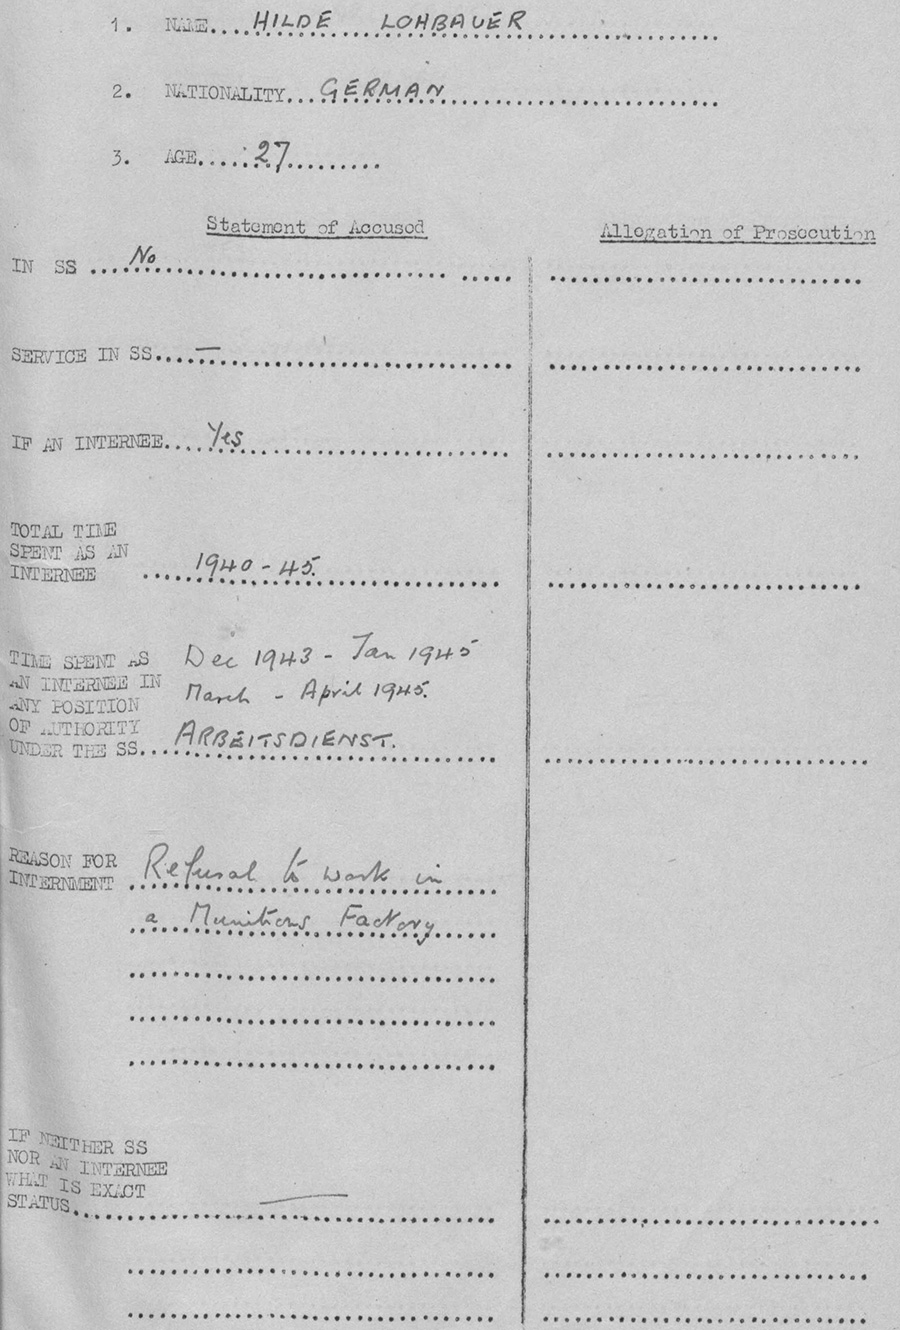 1. NAME.... HILDE LOHBAUER
2. NATIONALITY... GERMAN
3. AGE..... 27
Statement of Accused
Allegation of Prosecution
IN SS .... No
SERVICE IN SS.... —
IF AN INTERNEE.... Yes
TOTAL TIME
SPENT AS AN
INTERNEE .... 1940 - 45.
TIME SPENT AS Dec 1943 - Jan 1945
AN INTERNEE IN March - April 1945.
ANY POSITION
OF AUTHORITY ARBEITSDIENST.
UNDER THE SS....
REASON FOR Refusal to work in
INTERNMENT
a Munitions Factory
IF NEITHER SS
NOR AN INTERNEE
WHAT IS EXACT
STATUS.... —